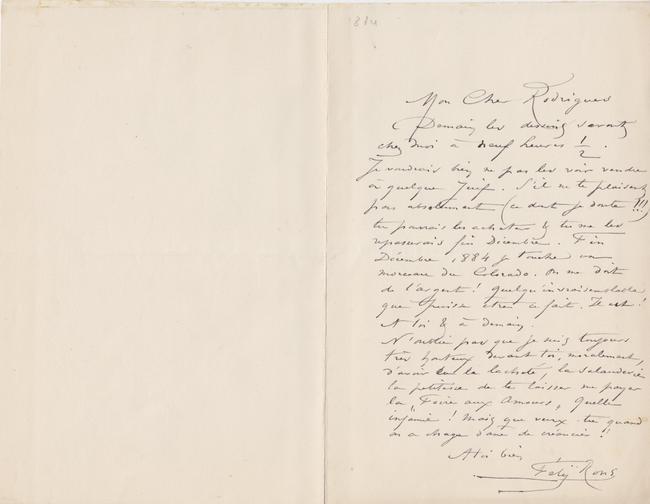 1884
Mon Cher Rodrigues
Demain les dessins seront
chez moi à neuf heures 1/2.
Je voudrais bien ne pas les voir vendre
à quelque Juif. S'il ne te plaisent
pas absolument (ce dont je doute!!!)
tu pourrais les acheter & tu me les
repasserais fin Décembre. Fin
Décembre 1884 je touche un
morceau du Colorado. On me doit
de l'argent! quelqu'invraisemblable
que puisse être ce fait. Il est!
A toi & à demain.
N'oublie pas que je suis toujours
très honteux devant toi, moralement,
d'avoir eu la lacheté, la saladerie
la petitesse de te laisser me payer
la "Foire aux Amours", quelle
infamie! Mais que veux-tu quand
on a chargé d'âne de créanciers!
A toi bien
Fély Rops